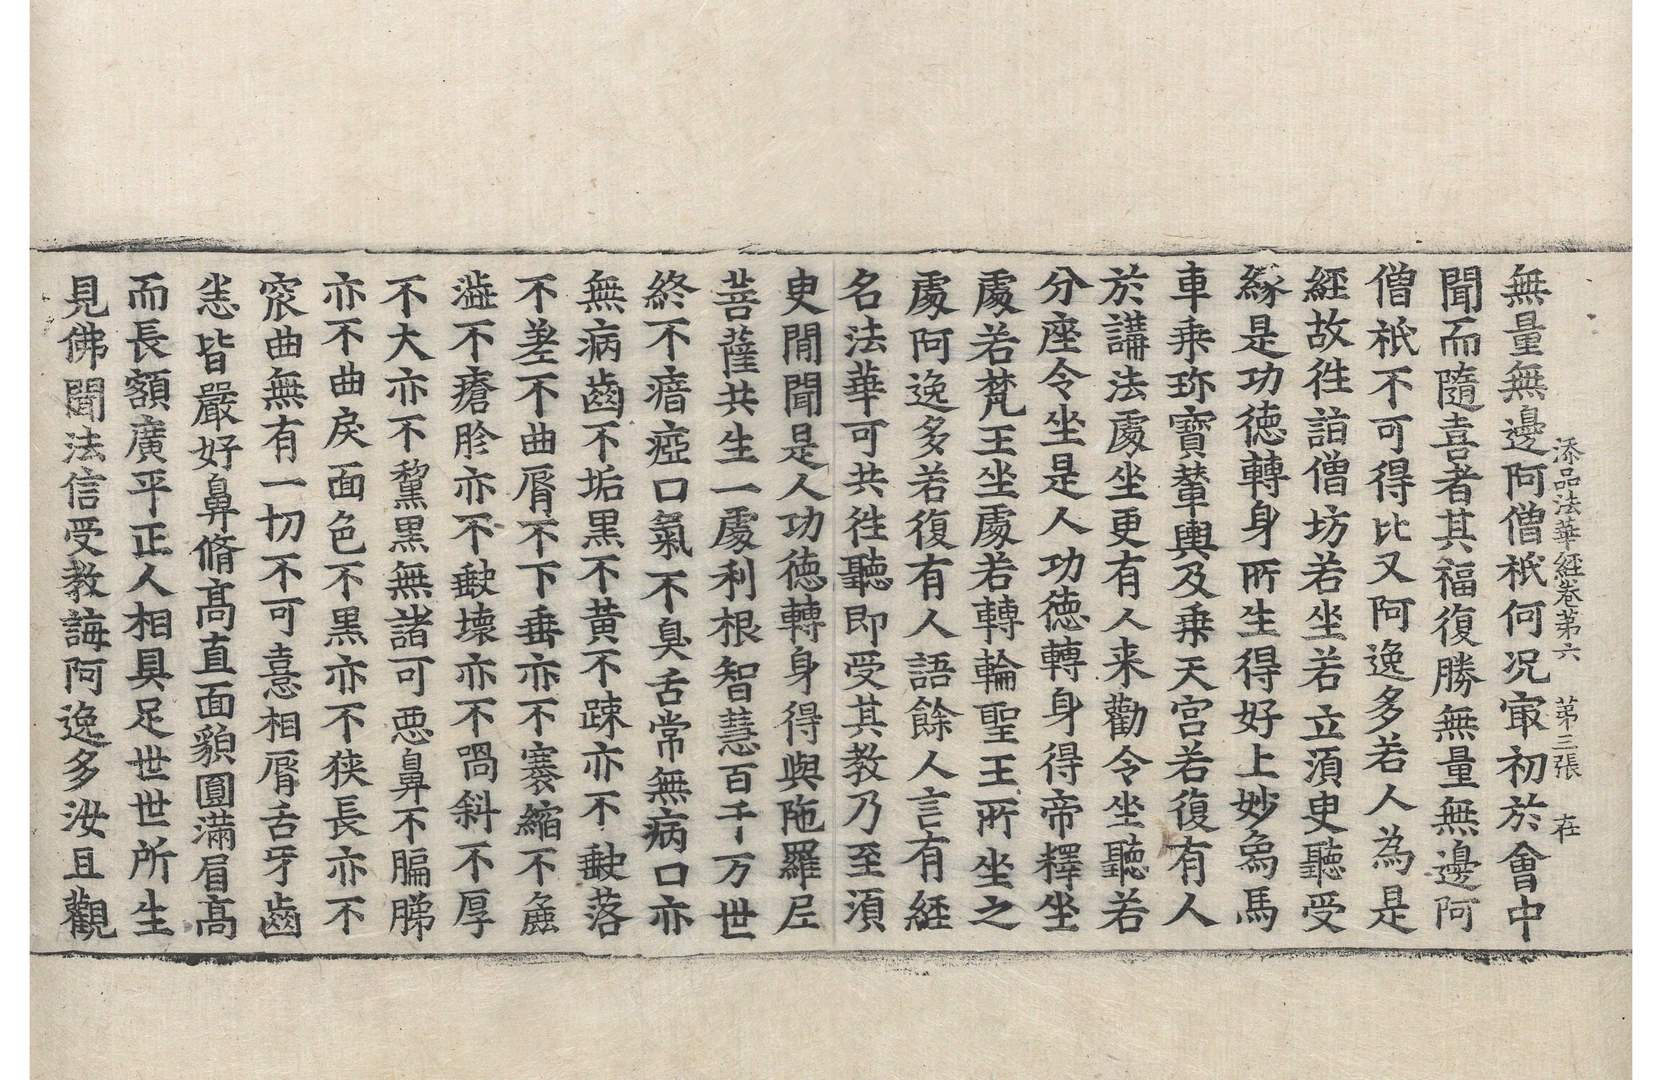 添品法華經卷第六　第三張　在
無量無邊阿僧祇何况㝡初於會中
聞而隨喜者其福復勝無量無邊阿
僧祇不可得比又阿逸多若人為是
經故徃詣僧坊若坐若立湏臾聽受
緣是功德轉身所生得好上妙象馬
車乗珎寶輦輿及乗天宫若復有人
於講法處坐更有人来勸令坐聽若
分座令坐是人功德轉身得帝釋坐
處若梵王坐處若轉輪聖王所坐之
處阿逸多若復有人語餘人言有經
名法華可共徃聽即受其教乃至湏
臾閒聞是人功德轉身得與陁羅尼
菩薩共生一處利根智慧百千万世
終不瘖瘂口氣不臭舌常無病口亦
無病齒不垢黑不黃不踈亦不䶢落
不差不曲脣不下垂亦不褰縮不麁
澁不瘡胗亦不䶢壞亦不喎斜不厚
不大亦不黧黑無諸可惡鼻不膈䏲
亦不曲戾面色不黑亦不狹長亦不
窊曲無有一切不可憙相脣舌牙齒
悉皆嚴好鼻脩髙直面貌圓滿眉髙
而長額廣平正人相具足世世所生
見佛聞法信受教誨阿逸多汝且觀